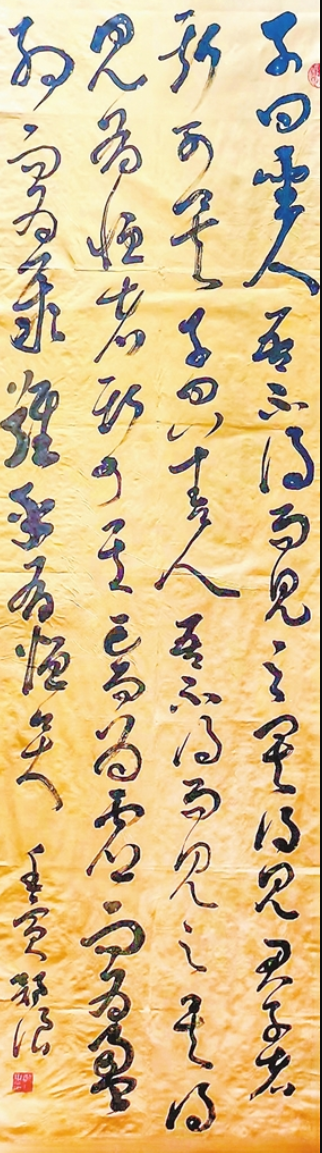 子曰聖人吾不得而見之矣得見君子者
斯可矣子曰善人吾不得而見之矣得
見有恆者斯可矣亡而為虛而為盈
約而為泰難乎有恆矣
壬寅